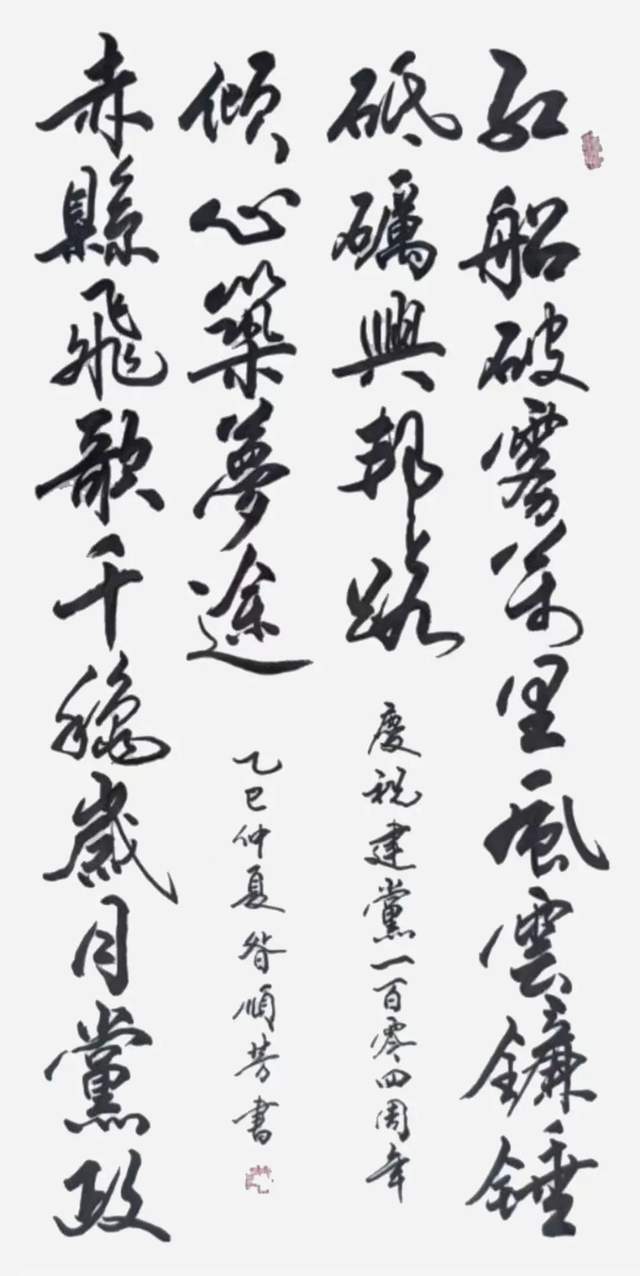 紅船破霧萬里風雲鐮錘
砥礪興邦路
慶祝建黨一百零四周年
赤縣飛歌千穐歲月黨政
傾心築夢途
乙巳仲夏昝順芳書